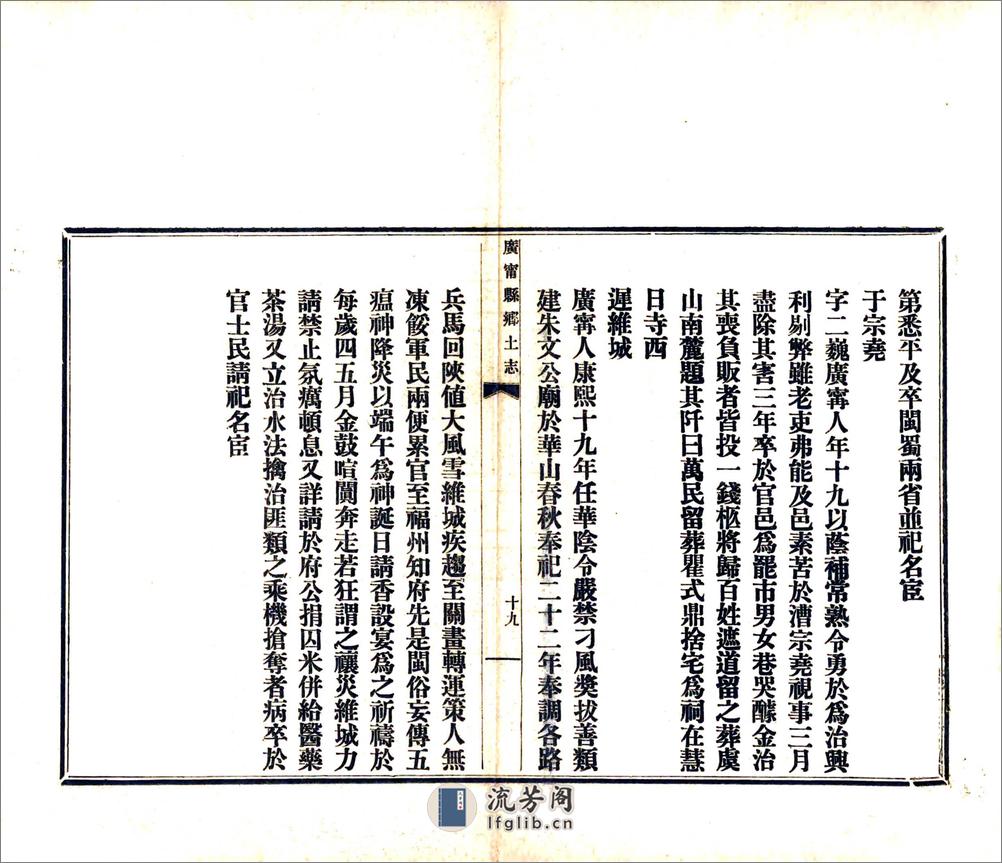 第悉平及卒閩蜀兩省並祀名宦
于宗堯
字二巍廣甯人年十九以蔭補常熟令勇於爲治興
利剔弊雖老吏弗能及邑素苦於漕宗堯視事三月
盡除其害三年卒於官邑爲罷市男女巷哭醵金治
其喪負販者皆投一錢柩將歸百姓遮道留之葬虞
山南麓題其阡曰萬民留葬瞿式鼎捨宅爲祠在慧
日寺西
遲維城
廣甯人康熙十九年任華陰令嚴禁刁風奬拔善類
建朱文公廟於華山春秋奉祀二十二年奉調各路
廣甯縣鄉土志
十九
兵馬回陝値大風雪維城疾趨至關畫轉運策人無
凍餒軍民兩便累官至福州知府先是閩俗妄傳五
瘟神降災以端午爲神誕日請香設宴爲之祈禱於
每歲四五月金鼓喧闐奔走若狂謂之禳災維城力
請禁止氛癘頓息又詳請於府公捐囚米併給醫藥
茶湯又立治水法擒治匪類之乘機搶奪者病卒於
官士民請祀名宦
流芳阁
lfglib.cn